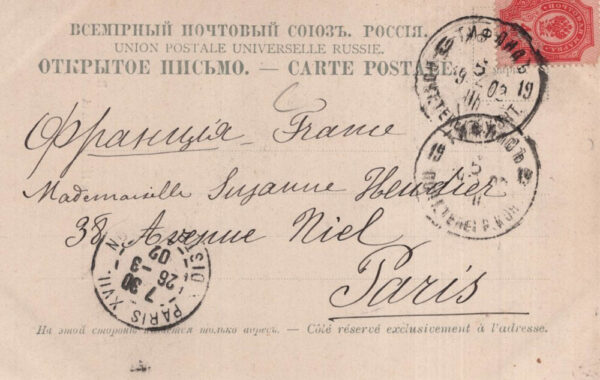 ВСЕМІРНЫЙ ПОЧТОВЫЙ СОЮЗЪ. РОССІЯ.
UNION POSTALE UNIVERSELLE RUSSIE.
ОТКРЫТОЕ ПИСЬМО. — CARTE POSTALE
Франція - France
Mademoiselle Suzanne
38 Avenue Niel
Paris
PARIS XVII
7 30
26 -3
02
На этой сторонѣ пишется только адресъ. — Côté réservé exclusivement à l'adresse.